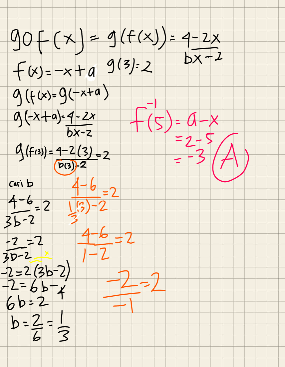 gof(x) = g(f(x)) = 4-2x / bx-2
f(x) = -x+a   g(3)=2
g(f(x) = g(-x+a)
g(-x+a) = 4-2x / bx-2
g(f(3)) = 4-2(3) / b(3)-2 = 2
cari b
4-6 / 3b-2 = 2
-2 / 3b-2 = 2
-2 = 2(3b-2)
-2 = 6b-4
6b = 2
b = 2/6 = 1/3
4-6 / 1/3(3)-2 = 2
4-6 / 1-2 = 2
-2 / -1 = 2
f⁻¹(5) = a-x
= 2-5
= -3 A